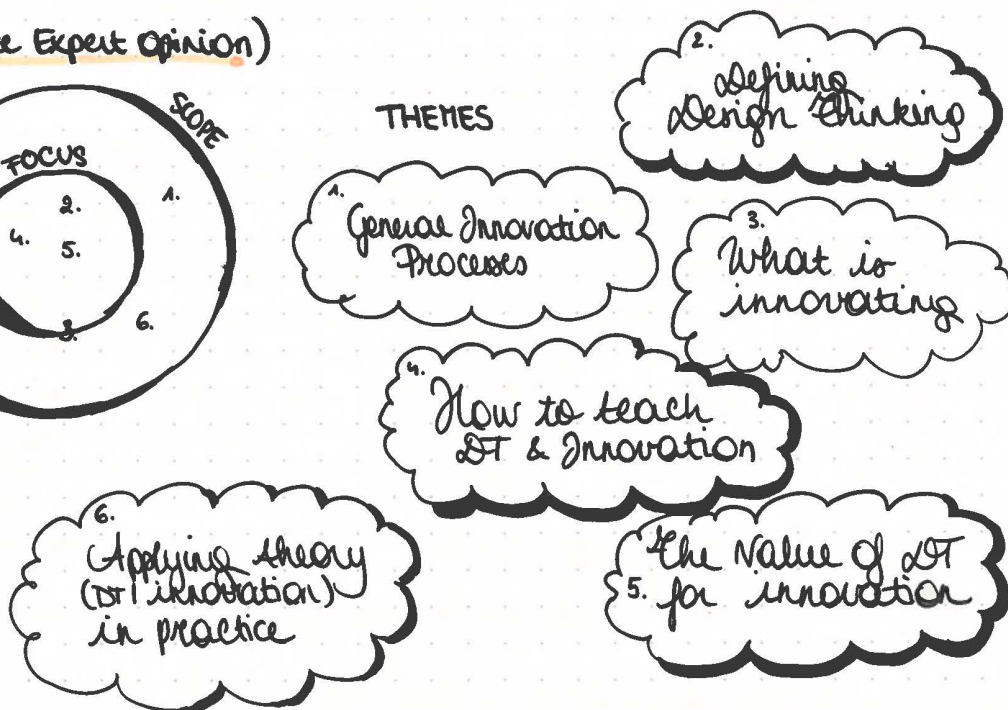 Expert Opinion)
SCOPE
FOCUS
2.
1.
4.
5.
3.
6.
THEMES
1.
General Innovation
Processes
2.
Defining
Design Thinking
3.
What is
innovating
4.
How to teach
DT & Innovation
5.
The Value of DT
for innovation
6.
Applying theory
(DT | innovation)
in practice